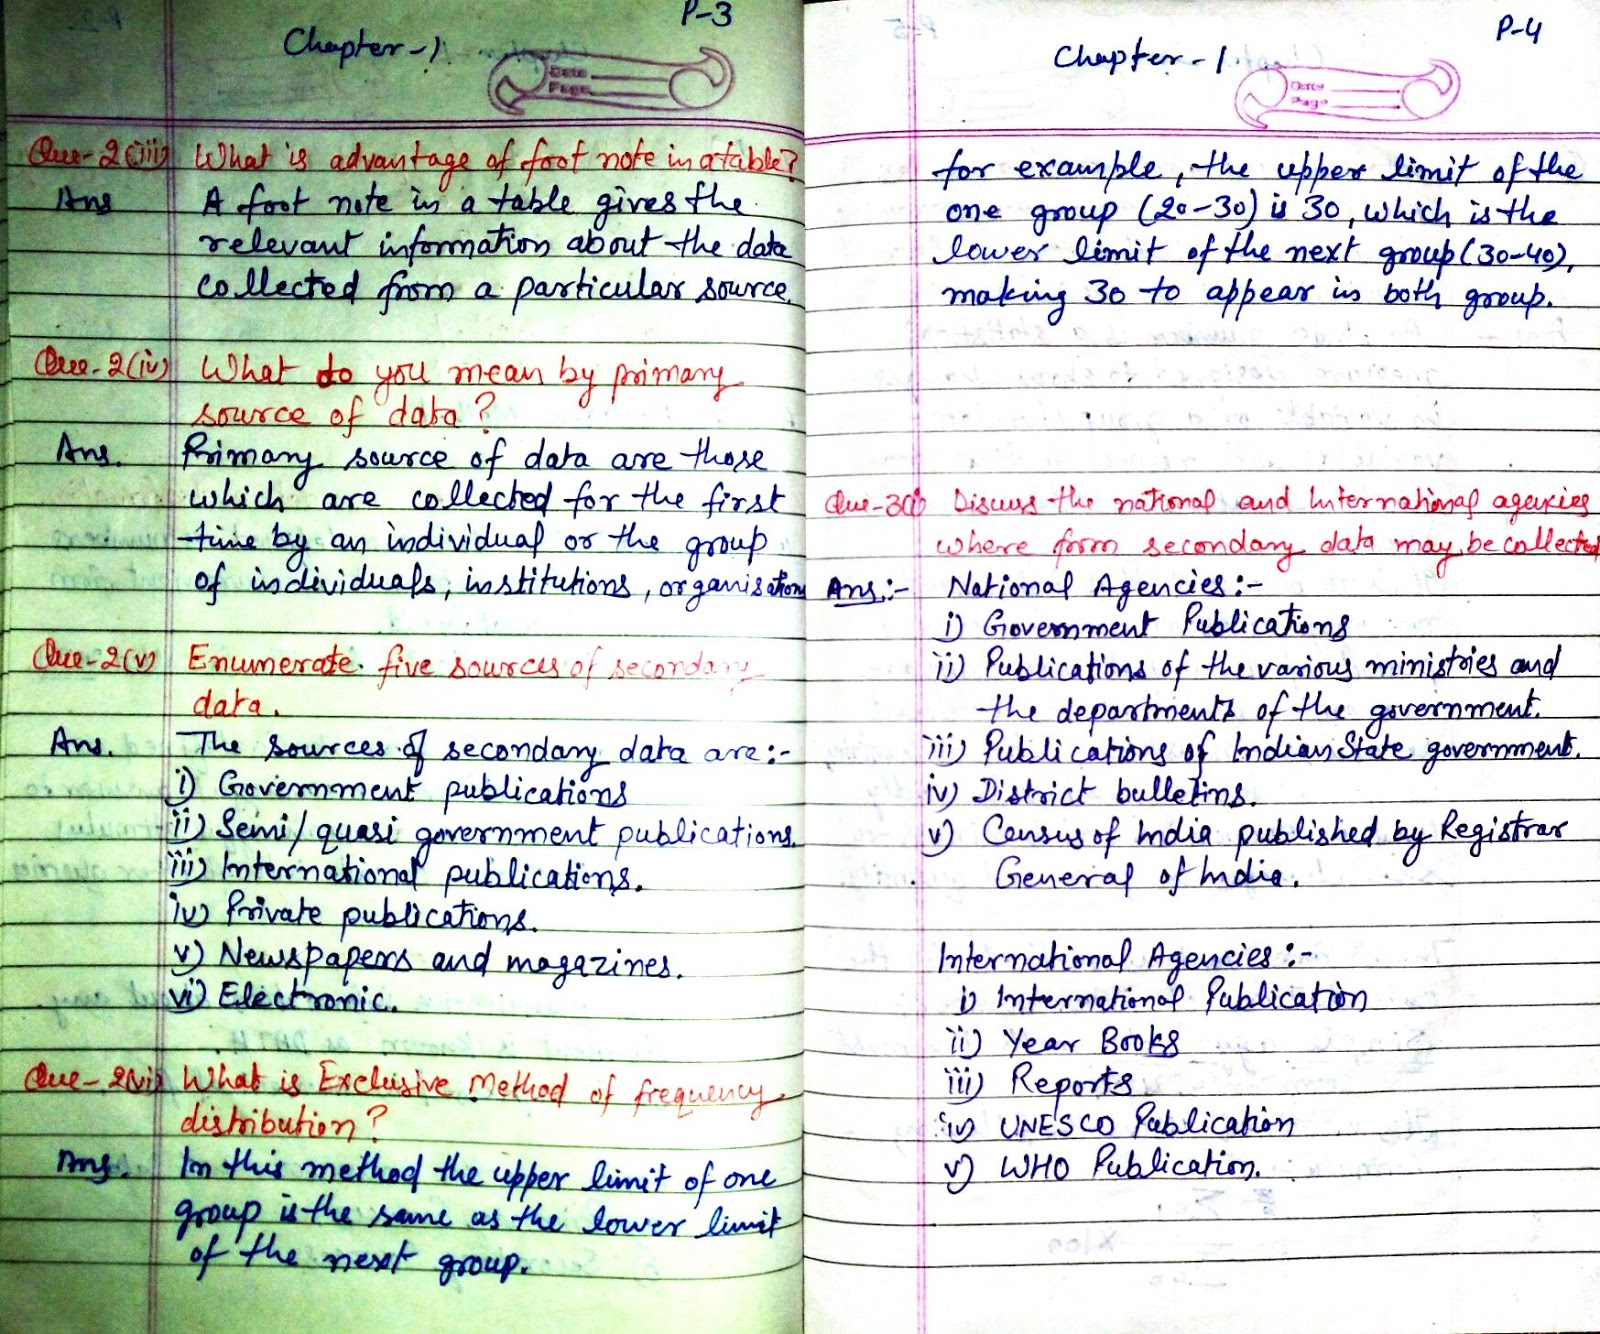 P-3
Chapter-1
Date
Page
Que-2(iii) What is advantage of foot note in a table?
Ans A foot note in a table gives the
relevant information about the data
collected from a particular source.
Que-2(iv) What do you mean by primary
source of data?
Ans. Primary source of data are those
which are collected for the first
time by an individual or the group
of individuals, institutions, organisations
Que-2(v) Enumerate five sources of secondary
data.
Ans. The sources of secondary data are:-
i) Government publications
ii) Semi/quasi government publications.
iii) International publications.
iv) Private publications.
v) Newspapers and magazines.
vi) Electronic.
Que-2(vi) What is Exclusive Method of frequency
distribution?
Ans. In this method the upper limit of one
group is the same as the lower limit
of the next group.
P-4
Chapter-1
Date
Page
for example, the upper limit of the
one group (20-30) is 30, which is the
lower limit of the next group (30-40),
making 30 to appear in both group.
Que-3(i) Discuss the national and International agencies
where from secondary data may be collected
Ans:- National Agencies:-
i) Government Publications
ii) Publications of the various ministries and
the departments of the government.
iii) Publications of Indian State government.
iv) District bulletins.
v) Census of India published by Registrar
General of India.
International Agencies:-
i) International Publication
ii) Year Books
iii) Reports
iv) UNESCO Publication
v) WHO Publication.